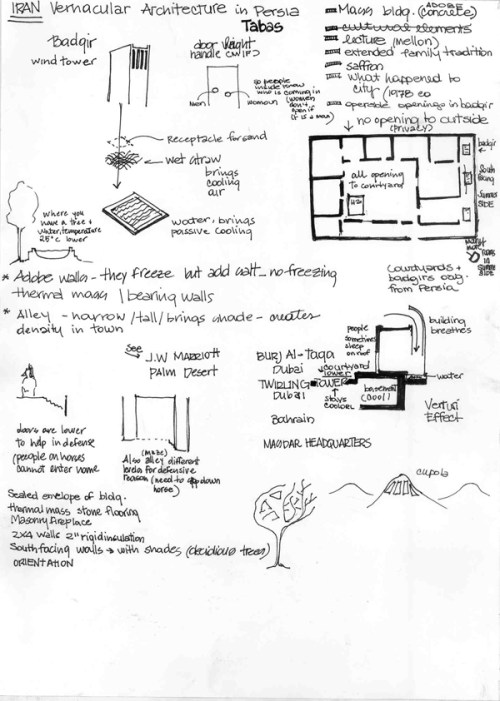 IRAN Vernacular Architecture in Persia
Tabas
Badgir
wind tower
door height
so people
inside know
who is coming in
(women
don't
open if
it is a man)
men
women
Mass bldg. (concrete)
ADOBE
cultural elements
lecture (mellon)
extended family tradition
saffron
what happened to
city / 1978 EQ
operable openings in badgir
no opening to outside
(privacy)
badgir
South
facing
Summer
SIDE
all opening
to courtyard
H2O
Receptacle for sand
wet straw
brings
cooling
air
where you
have a tree +
water, temperature
25°c lower
water, brings
passive cooling
Courtyards +
badgirs orig.
from Persia
* Adobe walls - they freeze but add salt - no freezing
thermal mass / bearing walls
* Alley - narrow / tall / brings shade - creates
density in town
See
J.W Marriott
Palm Desert
BURJ Al-Taqa
Dubai
TWIRLING TOWER
Dubai
Bahrain
MASDAR HEADQUARTERS
people
sometimes
sleep
on roof
courtyard
lower
stays
cooler
basement
(cool)
building
breathes
water
Venturi
Effect
doors are lower
to help in defense
(people on horses
cannot enter home
(maze)
Also alley different
levels for defensive
reason (need to
down
horse)
cupola
Sealed envelope of bldg.
thermal mass stone flooring
Masonry fireplace
2x4 walls 2" rigid insulation
South facing walls → with shades (decidious trees)
ORIENTATION